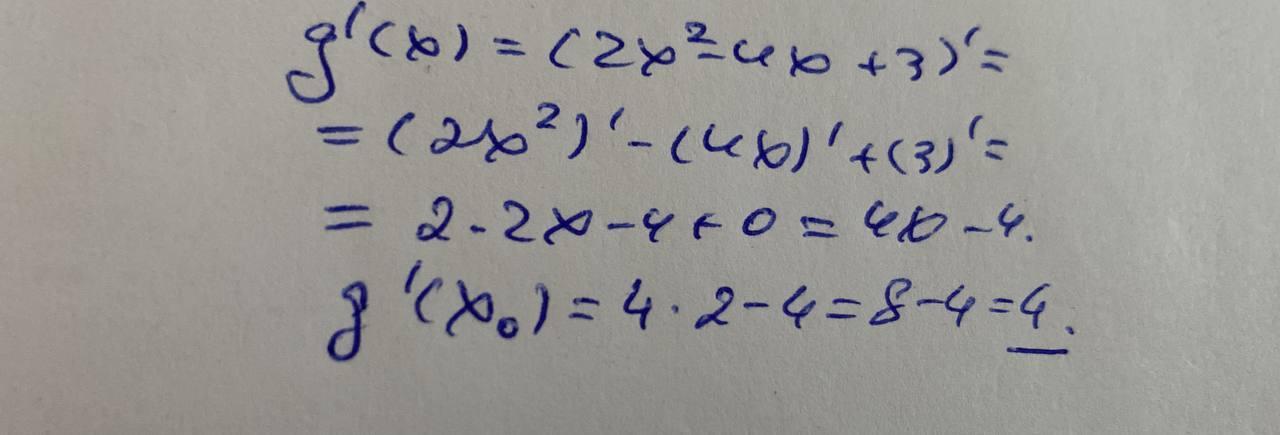 g'(x) = (2x² - 4x + 3)' =
= (2x²)' - (4x)' + (3)' =
= 2 · 2x - 4 + 0 = 4x - 4.
g'(x₀) = 4 · 2 - 4 = 8 - 4 = 4.